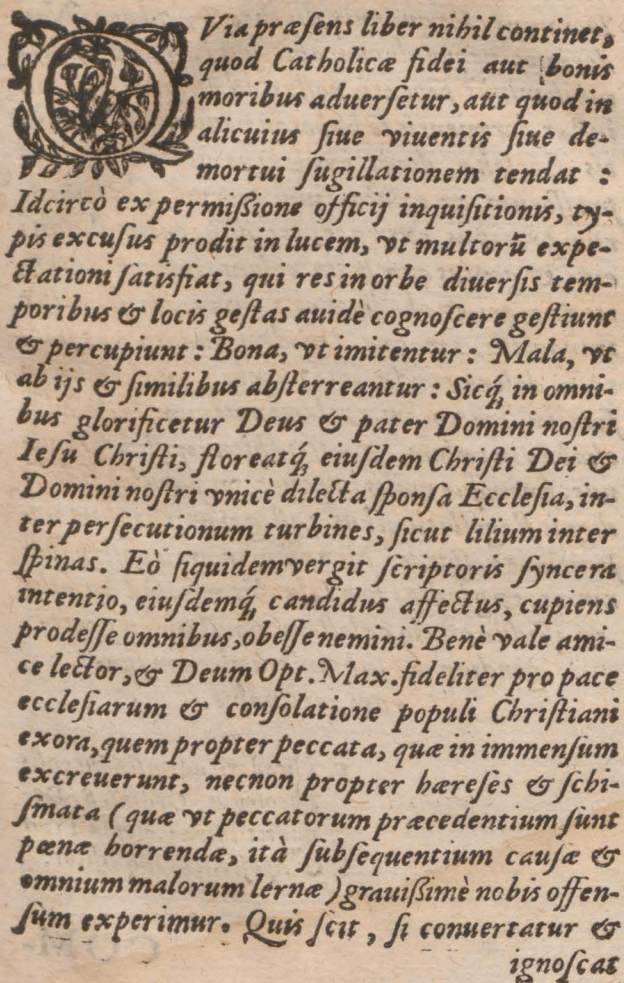 QVia præſens liber nihil continet,
quod Catholicæ fidei aut bonis
moribus aduerſetur, aut quod in
alicuius ſiue viuentis ſiue de-
mortui ſugillationem tendat :
Idcircò ex permiſsione officij inquiſitionis, ty-
pis excuſus prodit in lucem, vt multorũ expe-
ctationi ſatisfiat, qui res in orbe diuerſis tem-
poribus & locis geſtas auidè cognoſcere geſtiunt
& percupiunt : Bona, vt imitentur : Mala, vt
ab ijs & ſimilibus abſterreantur : Sicq́; in omni-
bus glorificetur Deus & pater Domini noſtri
Ieſu Chriſti, floreatq́; eiuſdem Chriſti Dei &
Domini noſtri vnicè dilecta ſponſa Eccleſia, in-
ter perſecutionum turbines, ſicut lilium inter
ſpinas. Eò ſiquidem vergit ſcriptoris ſyncera
intentio, eiuſdemq́; candidus affectus, cupiens
prodeſſe omnibus, obeſſe nemini. Benè vale ami-
ce lector, & Deum Opt. Max. fideliter pro pace
eccleſiarum & conſolatione populi Chriſtiani
exora, quem propter peccata, quæ in immenſum
excreuerunt, necnon propter hæreſes & ſchi-
ſmata ( quæ vt peccatorum præcedentium ſunt
pœnæ horrendæ, ità ſubſequentium cauſæ &
omnium malorum lernæ ) grauiſsimè nobis offen-
ſum experimur. Quis ſcit, ſi conuertatur &
ignoſcat